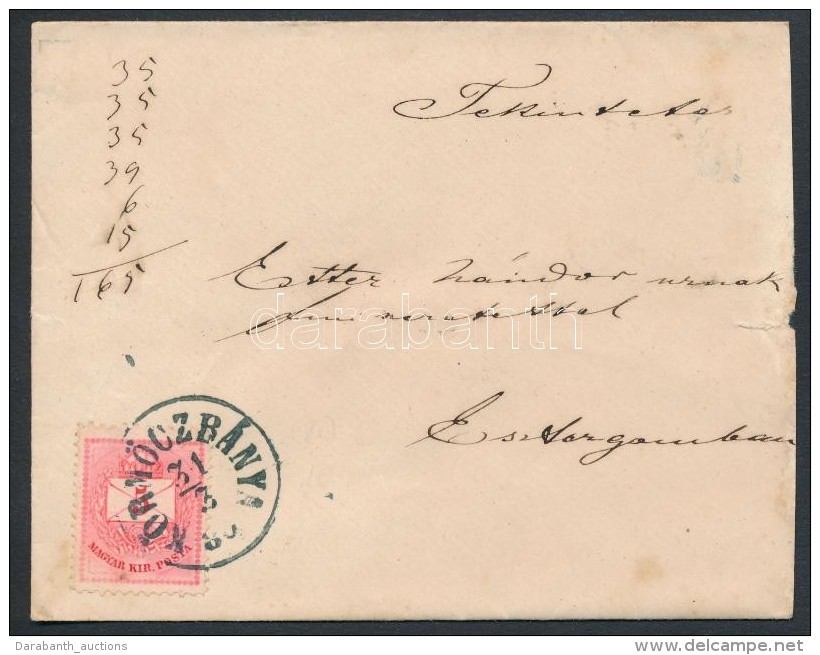 35
35
35
39
6
15
165
Tekintetes
Etter Nándor urnak
Esztergomban
KÖRMÖCZBÁNYA
31/3
MAGYAR KIR. POSTA
5
darabanth
Darabanth_auctions
www.delcampe.net